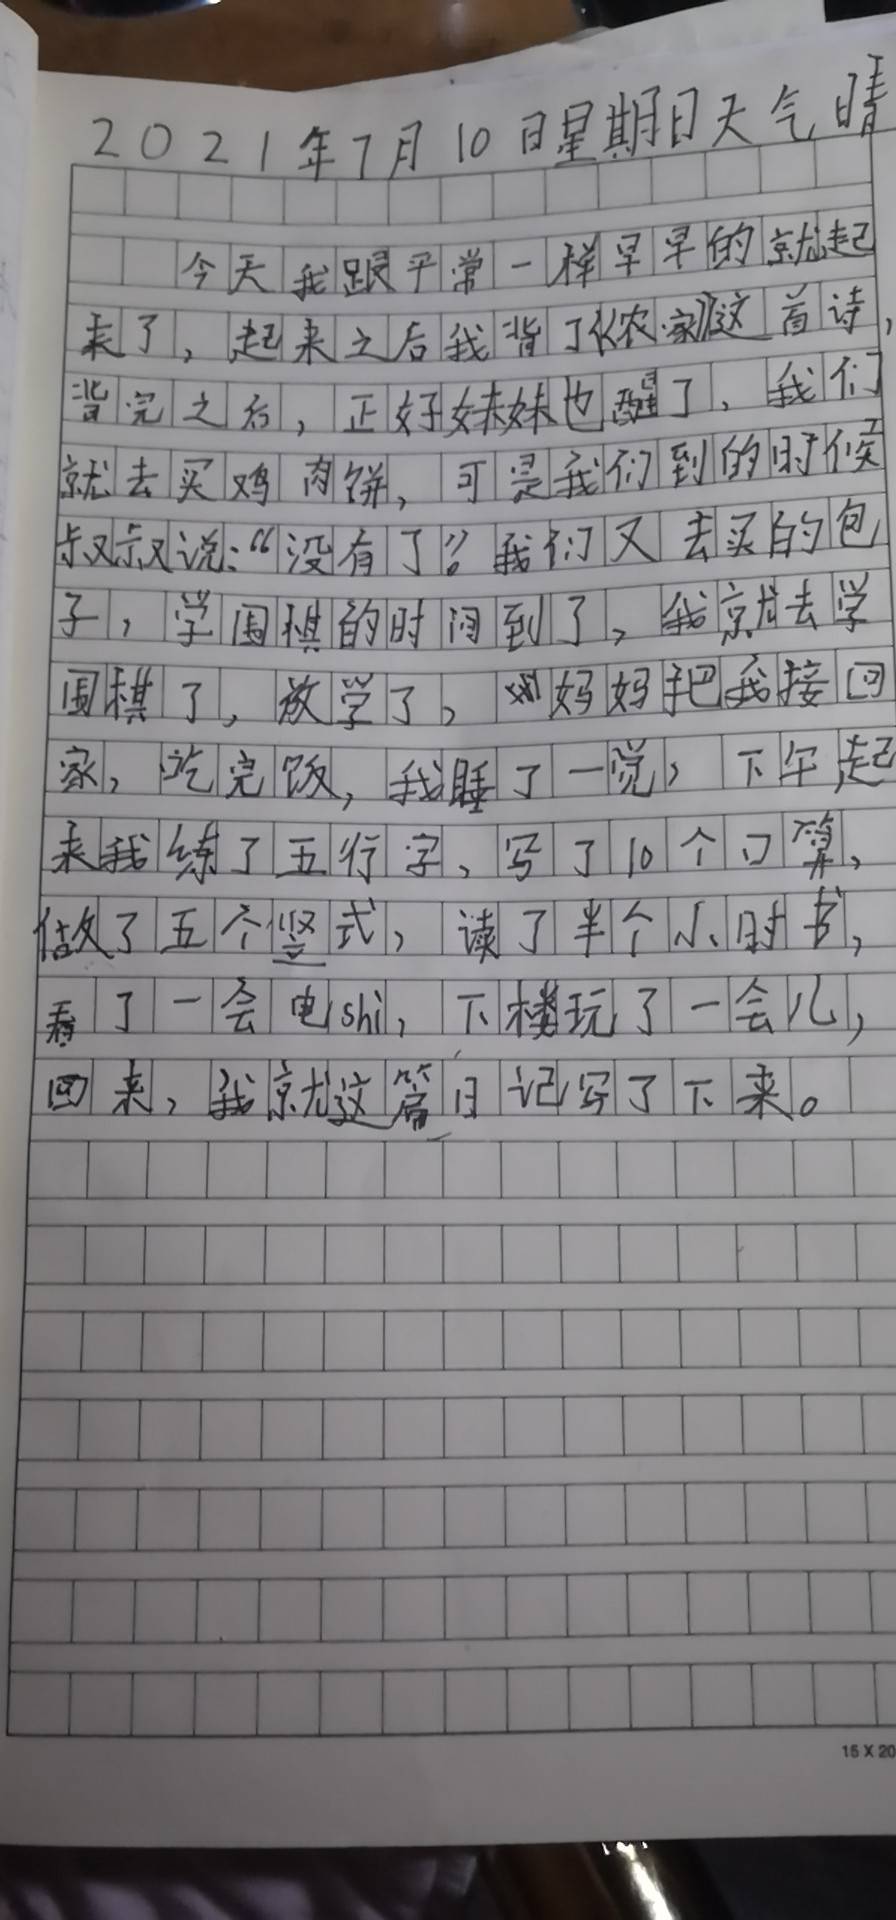 2021年7月10日星期日天气晴
今天我跟平常一样早早的就起
来了，起来之后我背了《农家》这首诗，
背完之后，正好妹妹也醒了，我们
就去买鸡肉饼，可是我们到的时候
叔叔说：“没有了”。我们又去买的包
子，学围棋的时间到了，我就去学
围棋了，放学了，妈妈把我接回
家，吃完饭，我睡了一觉，下午起
来我练了五行字，写了10个口算，
做了五个竖式，读了半个小时书，
看了一会电shi，下楼玩了一会儿，
回来，我就这篇日记写了下来。
15X20